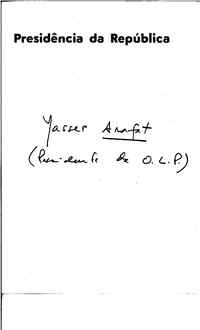 Presidência da República
Yasser Arafat
(Presidente da O.L.P.)